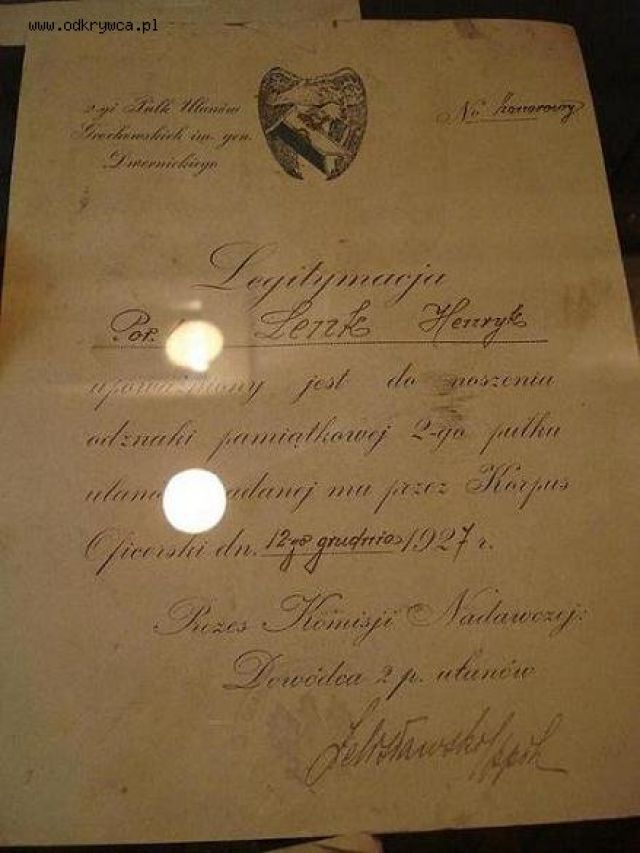 www.odkrywca.pl
2-gi Pułk Ułanów
Grochowskich im. gen.
Dwernickiego
No honorowy
Legitymacja
Por. Lenk Henryk
upoważniony jest do noszenia
odznaki pamiątkowej 2-go pułku
nadanej mu przez Korpus
Oficerski dn. 12-go grudnia 1927 r.
Prezes Komisji Nadawczej:
Dowódca 2 p. ułanów